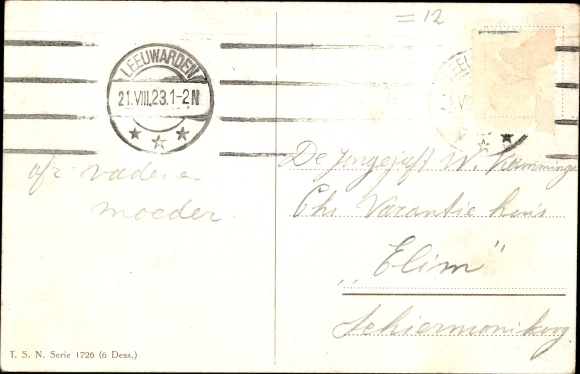 = 12
LEEUWARDEN
21.VIII.23.1-2N
LEEU
VII
afz. vader en
moeder.
De Jongejuff W.
Chr. Vacantie huis
„Elim"
Schiermonikoog.
T. S. N. Serie 1726 (6 Dess.)